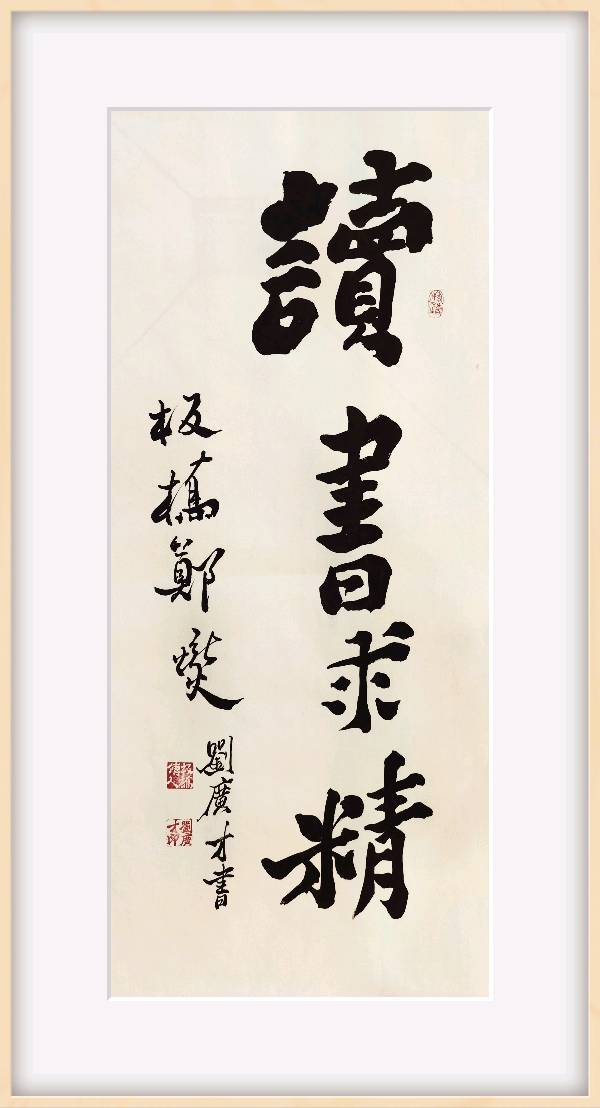 讀書求精
板橋鄭燮
劉廣才書
劉廣才印